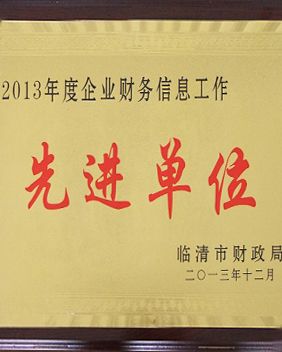 2013年度企业财务信息工作
先进单位
临清市财政局
二〇一三年十二月